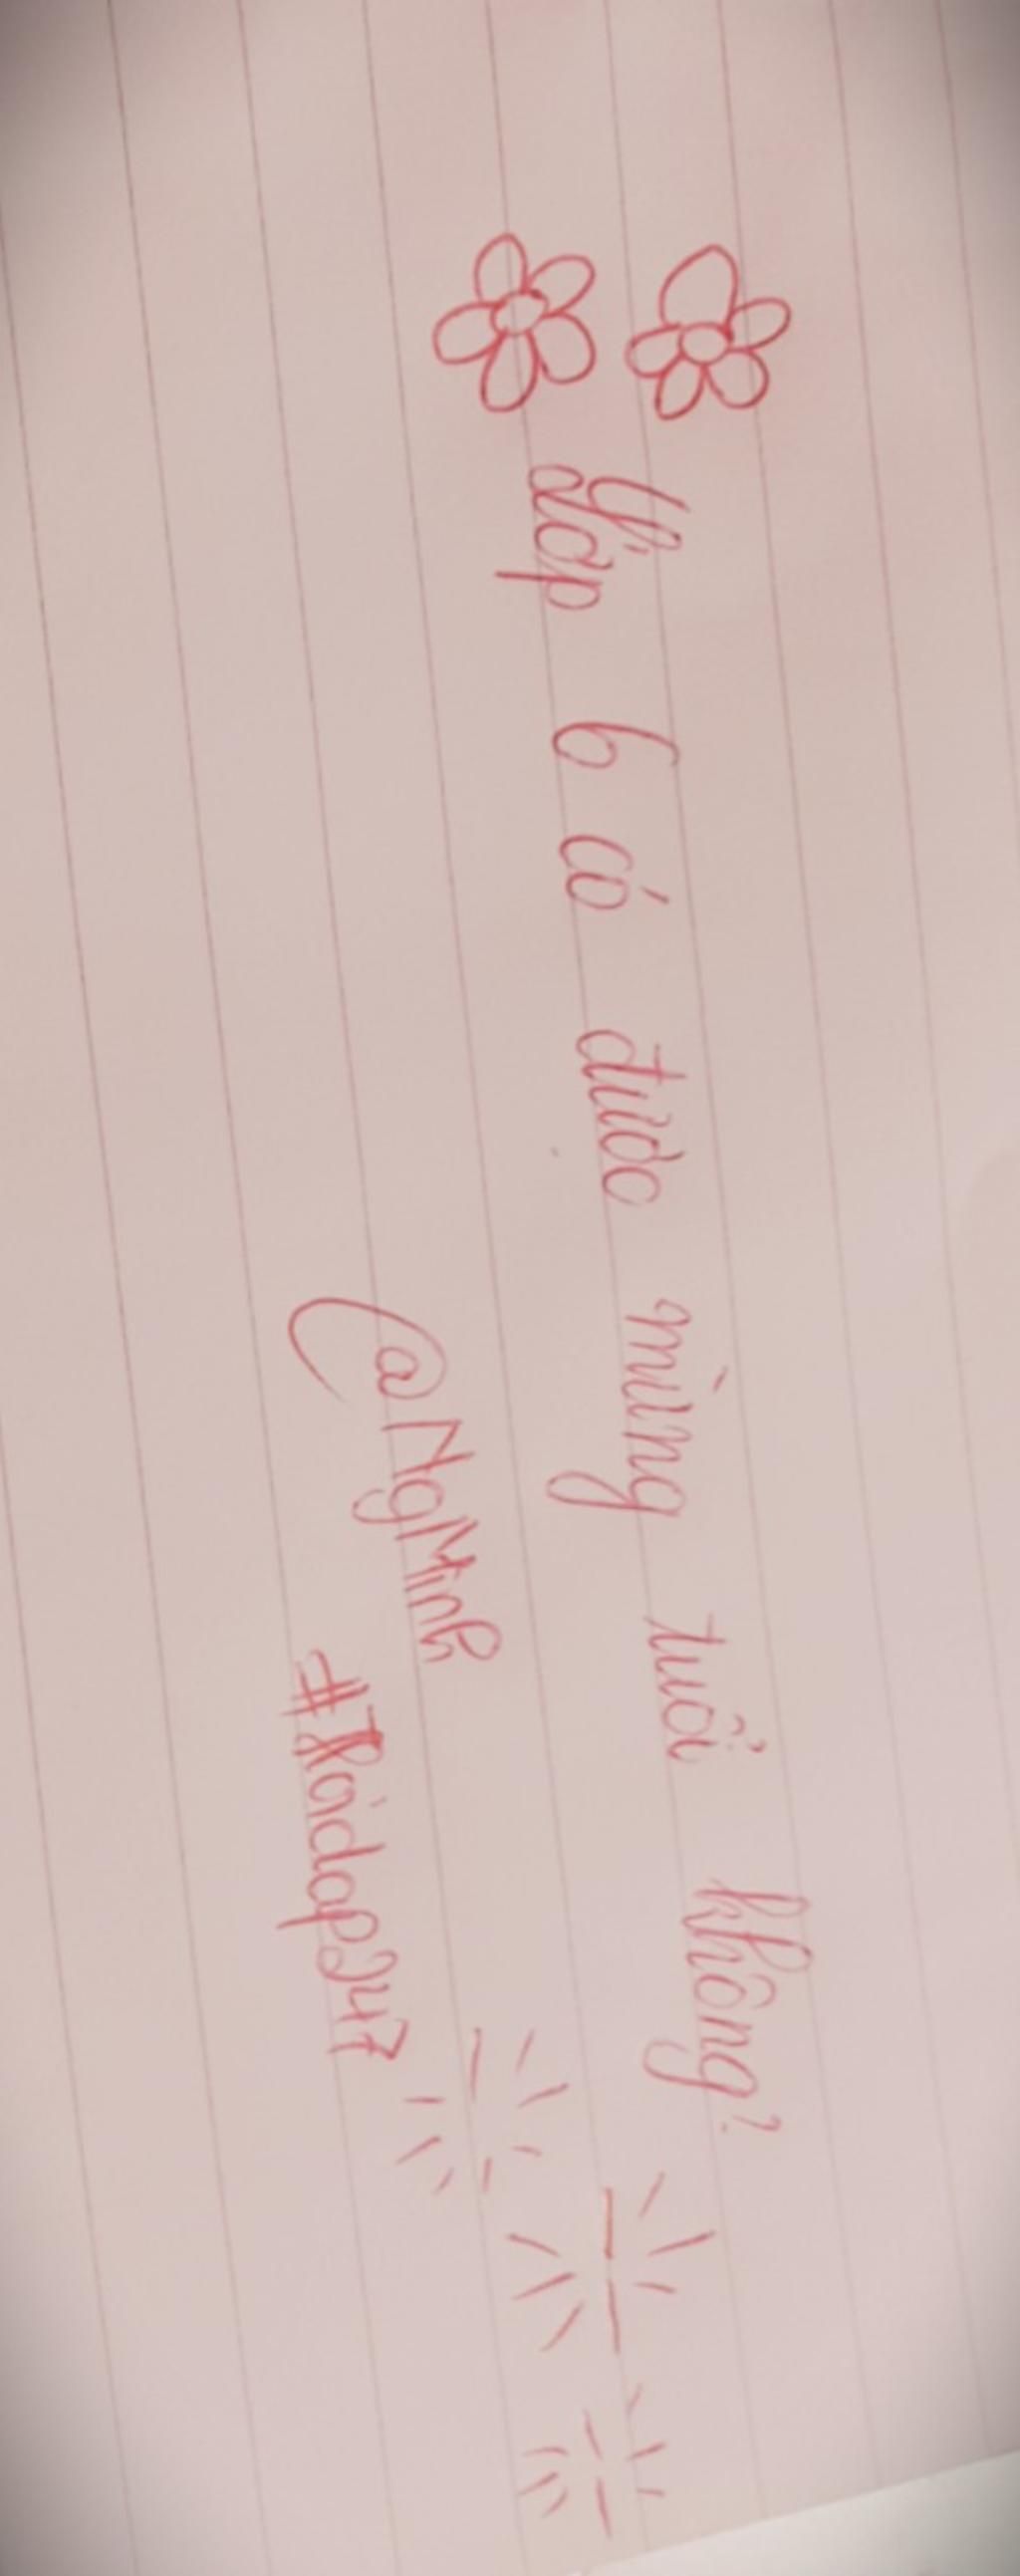 Lớp 6 có được mừng tuổi không?
@NgMinh
#Hoidap247